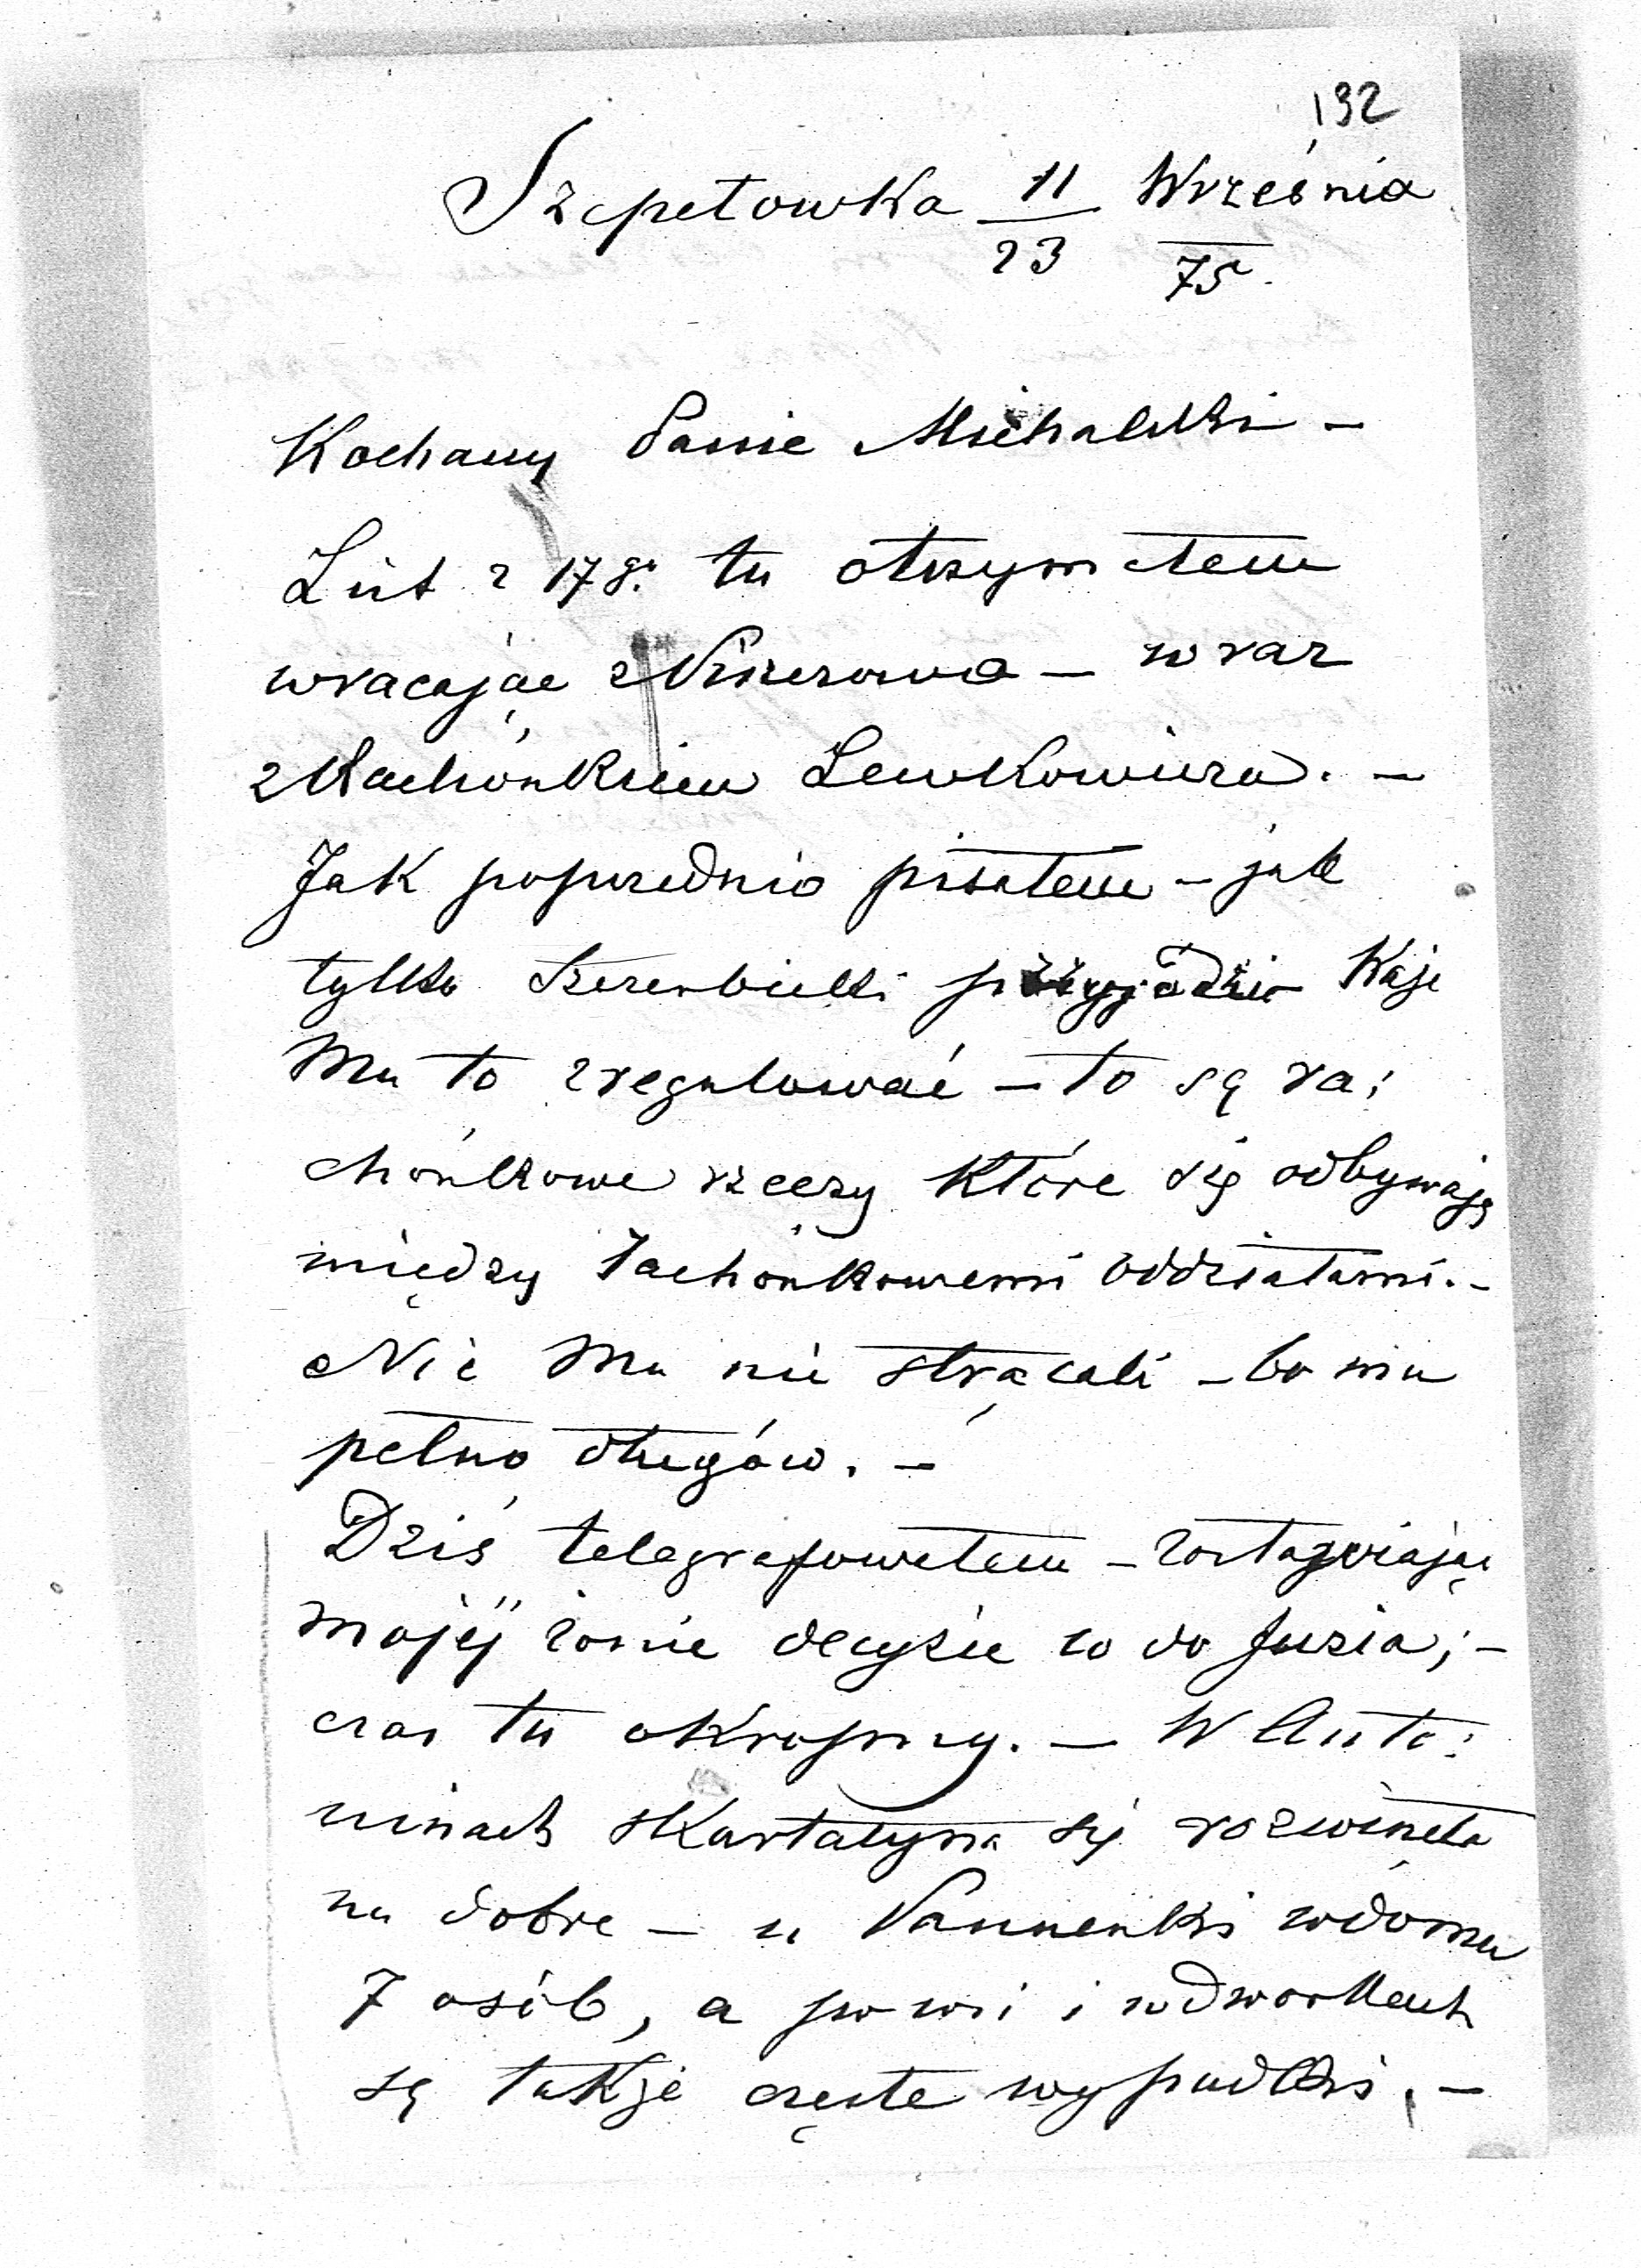 192
Szepetowka 11/23 Września 75.
Kochany Panie Michalski –
List z 17 go tu otrzymałem
wracając z – wraz
z Rachónkiem Lewkowicza. –
Jak poprzednio pisałem – jak
tylko przyjedzie każę
mu to zregulować – to są ra:
chónkowe rzeczy które się odbywają
między rachónkowemi oddziałami. –
Nic mu nie strącali – bo ma
pełno długów. –
Dziś telegrafowałem – zostawiając
mojéj żonie decyzie co do Juzia; –
czas tu okropny. – W Anto:
ninach skarlatyna się rozwinęła
na dobre – u Panienki w domu
7 osób, a po wsi i w dworkach
są także częste wypadki. –